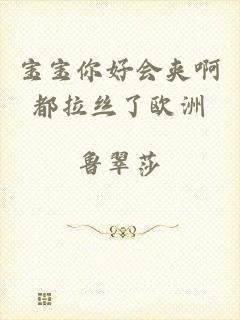 宝宝你好会夹啊
都拉丝了欧洲
鲁翠莎